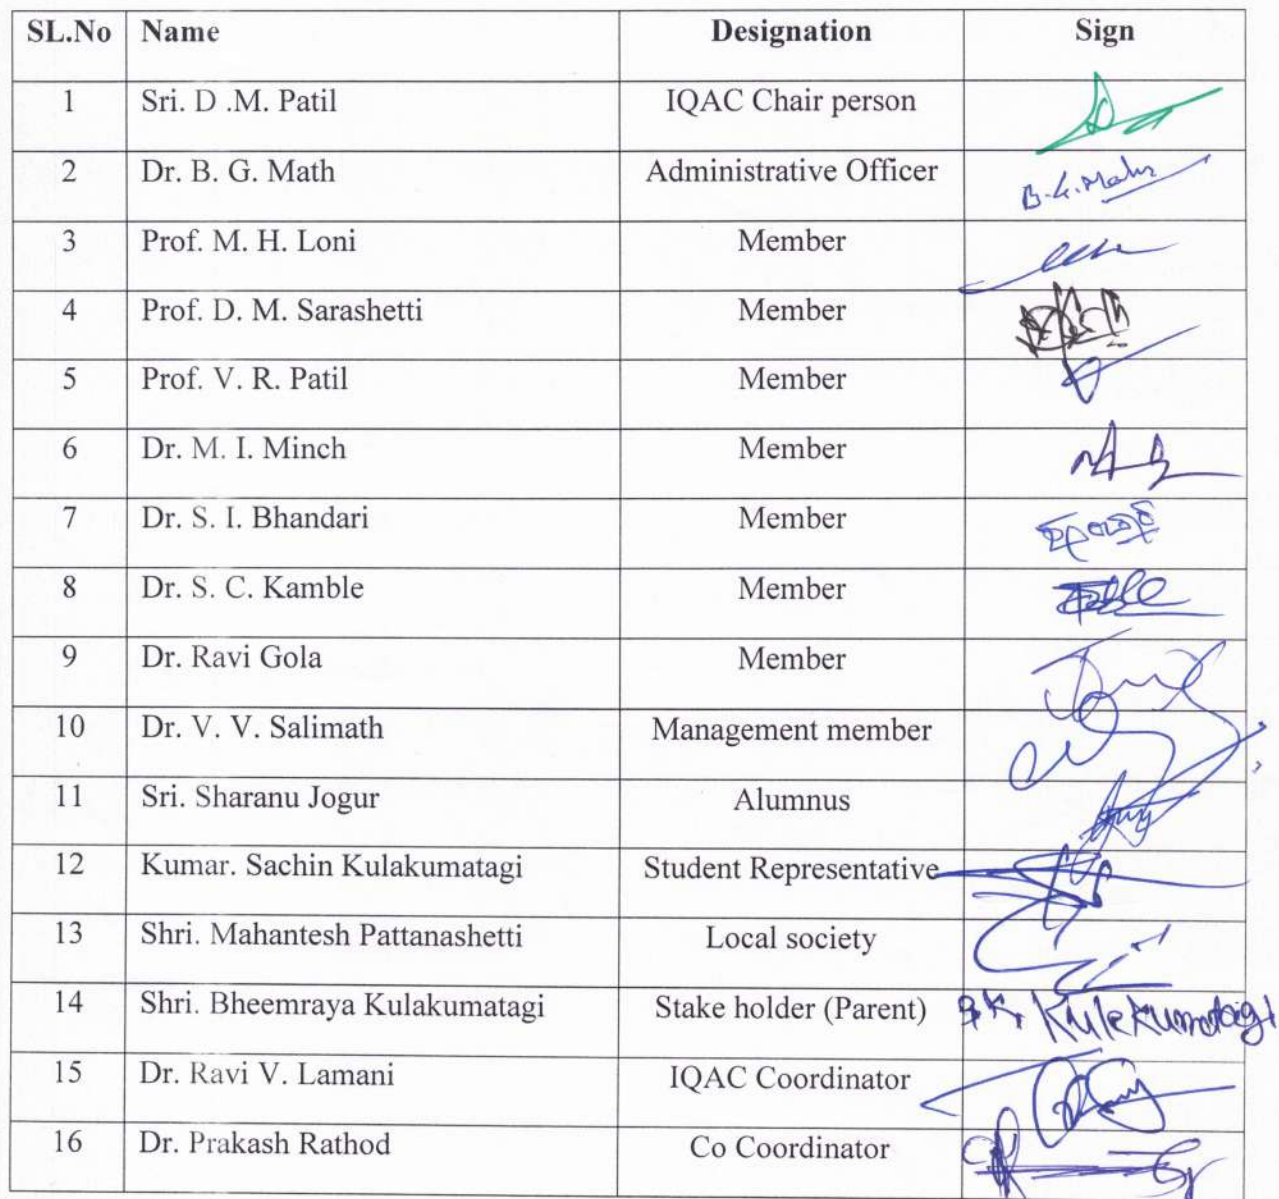 SL.No Name Designation Sign
1 Sri. D .M. Patil IQAC Chair person
2 Dr. B. G. Math Administrative Officer B.G.Math
3 Prof. M. H. Loni Member
4 Prof. D. M. Sarashetti Member
5 Prof. V. R. Patil Member
6 Dr. M. I. Minch Member
7 Dr. S. I. Bhandari Member
8 Dr. S. C. Kamble Member
9 Dr. Ravi Gola Member
10 Dr. V. V. Salimath Management member
11 Sri. Sharanu Jogur Alumnus
12 Kumar. Sachin Kulakumatagi Student Representative
13 Shri. Mahantesh Pattanashetti Local society
14 Shri. Bheemraya Kulakumatagi Stake holder (Parent) Kulekumatagi
15 Dr. Ravi V. Lamani IQAC Coordinator
16 Dr. Prakash Rathod Co Coordinator